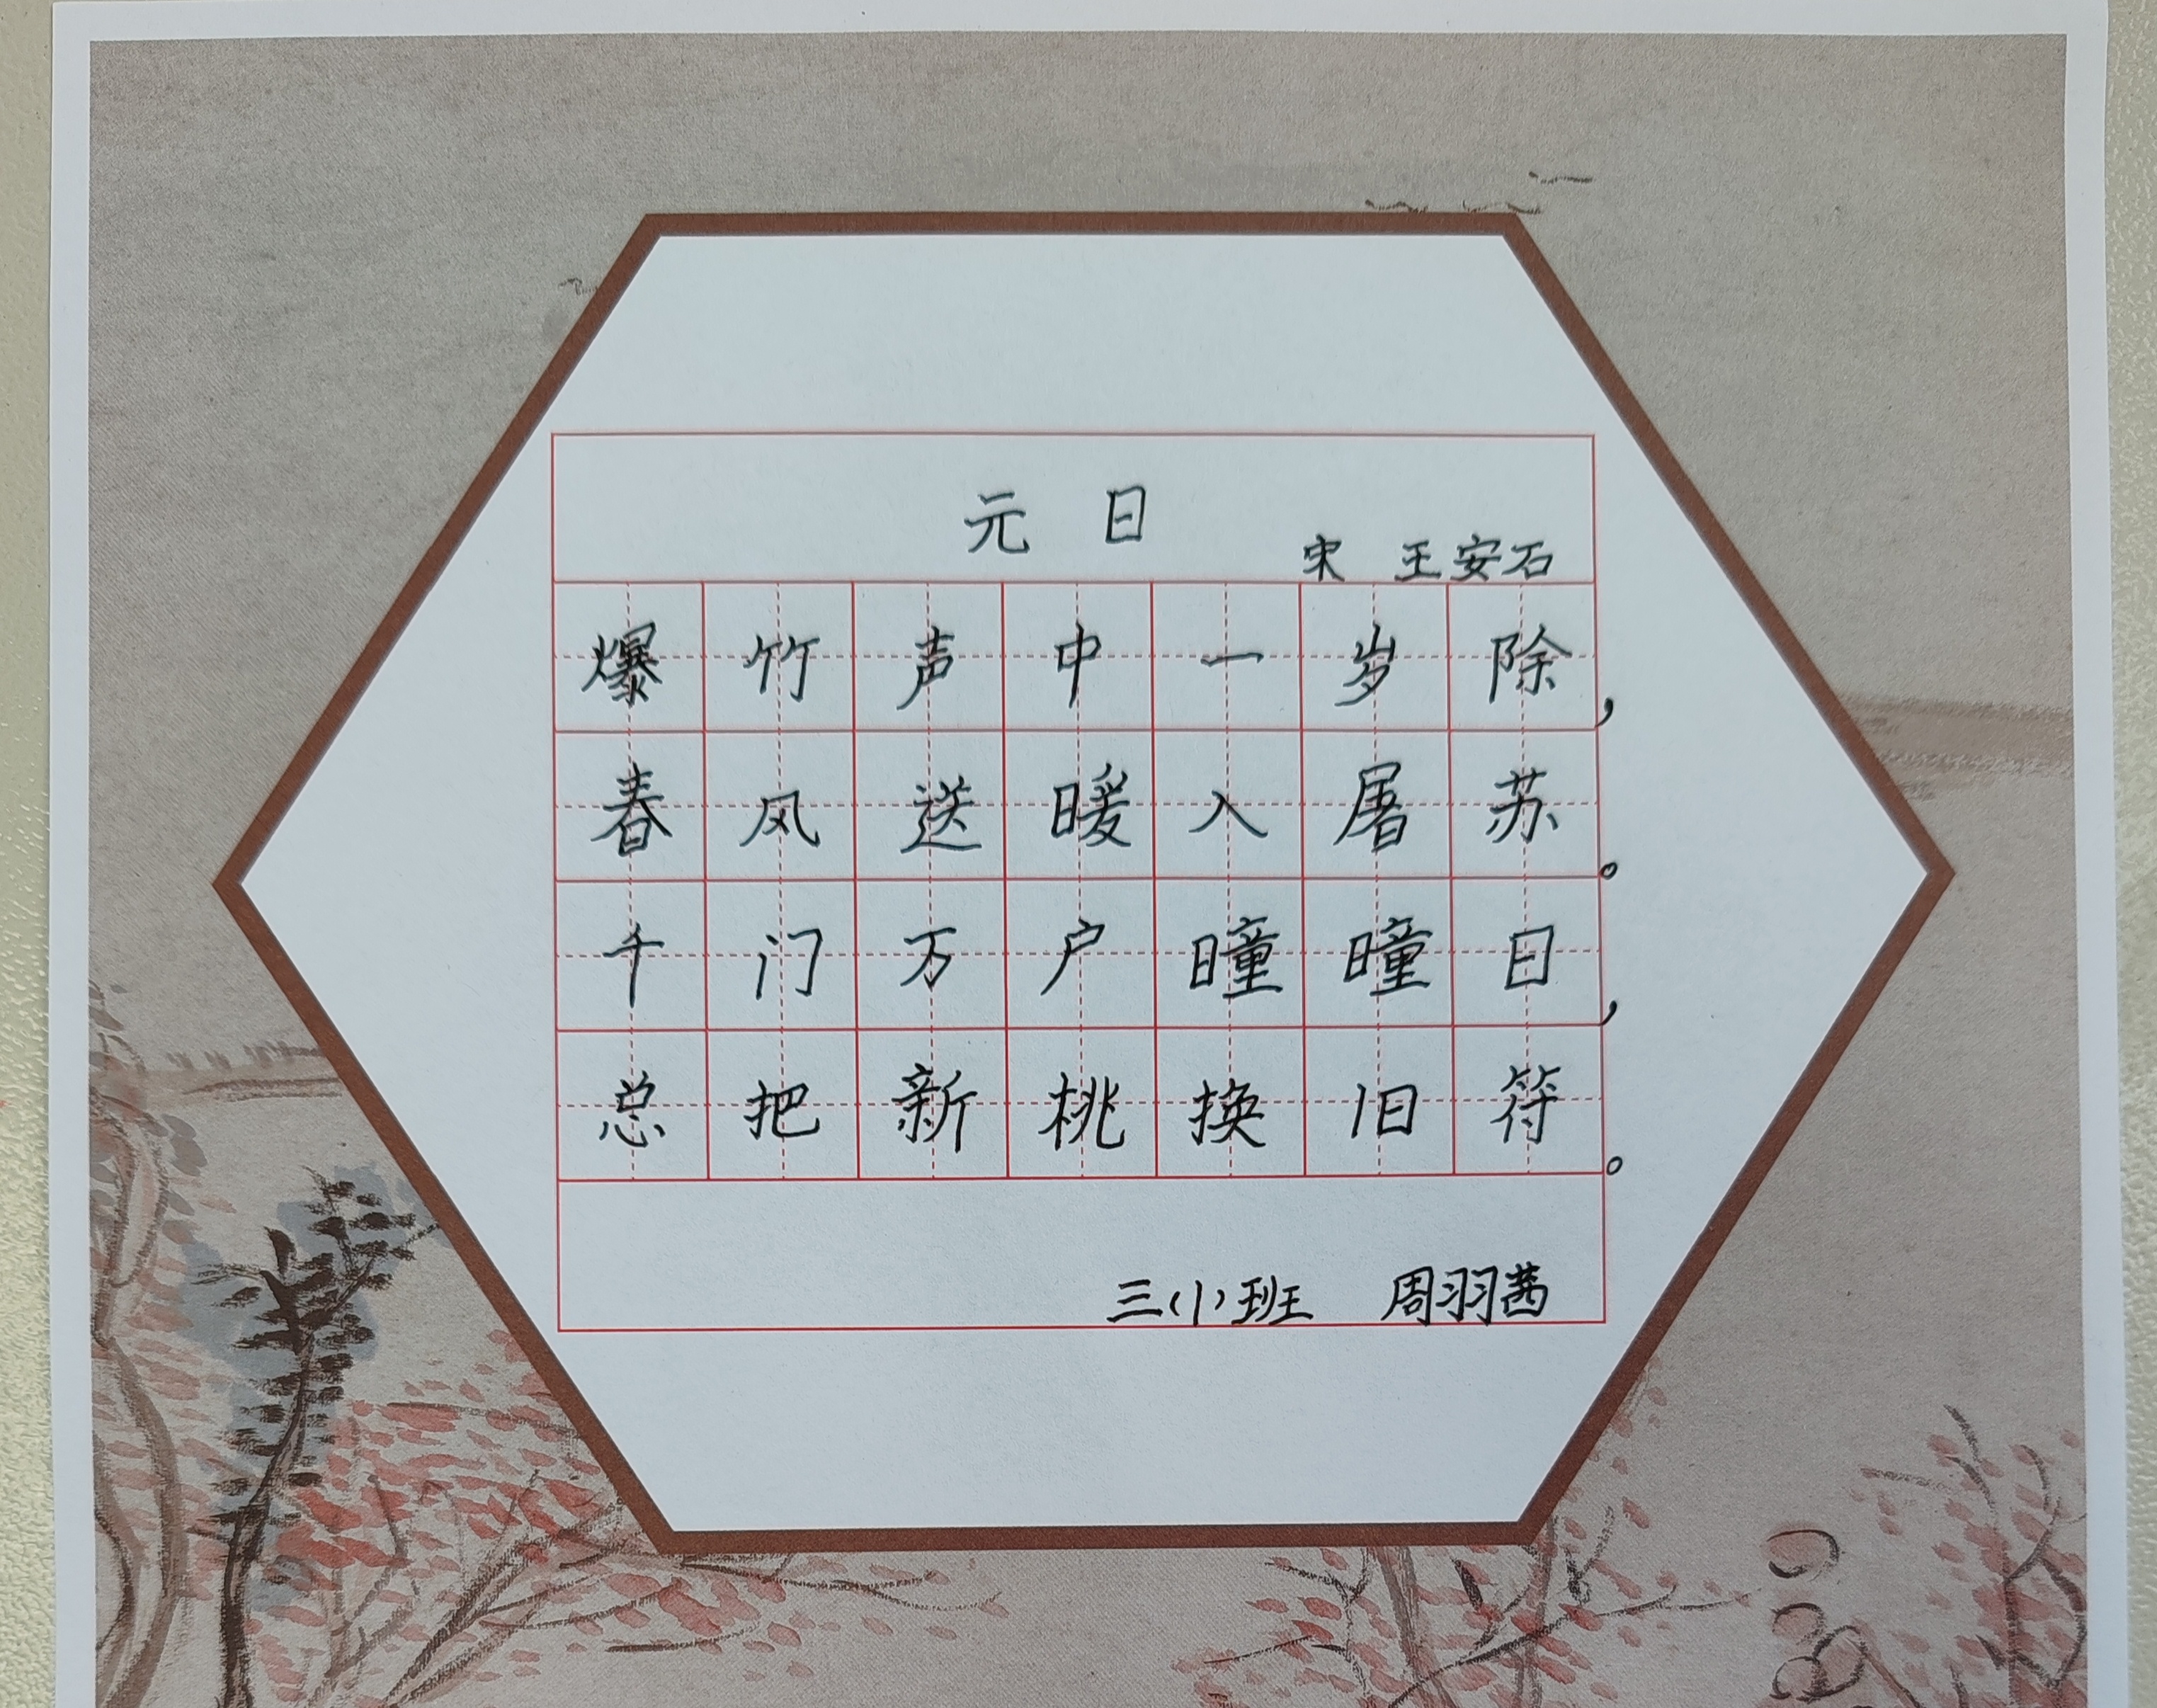 元 日
宋 王安石
爆竹声中一岁除，
春风送暖入屠苏。
千门万户曈曈日，
总把新桃换旧符。
三(1)班 周羽茜